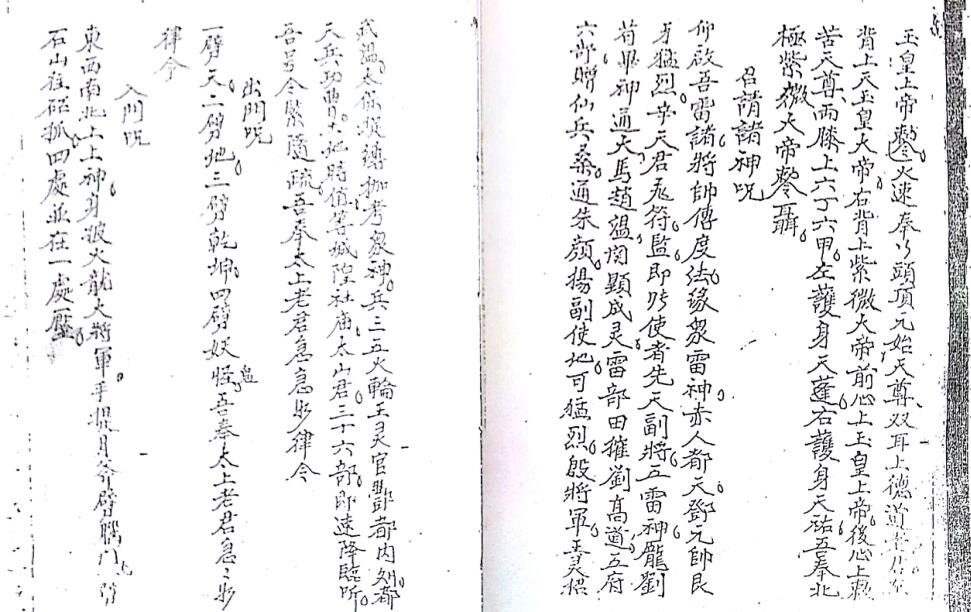 玉皇上帝鏧火速奉以頭頂元始天尊双耳上德道
背上天玉皇大帝右背上紫微大帝前心上玉皇上帝後心上救
苦天尊両膝上六丁六甲左護身天蓬右護身天祐吾奉北
極紫微大帝
召請諸神咒
仰啟吾雷諸將帥傳度法緣衆雷神赤人都天鄧元帥艮
牙猛烈辛天君飛符監即吽使者先天副將五雷神龍劉
苟畢神通大馬趙溫関顕成灵雷部田摧劉高道五府
六部贈仙兵桑通朱顔揚副使地可猛烈殷將軍灵招
武溫太保猴鎊枷考衆神兵三五火輪王灵官酆都内
天兵功曹土地時值等城隍社庙太山君三十六部即速降臨听
吾号令緊隨疏吾奉太上老君急急如律令
出門咒
一劈天二劈地三劈乾坤四劈妖怪鬼吾奉太上老君急々如
律令
入門咒
東西南北上上神身披火龍大將軍手提月斧劈
石山往在一處